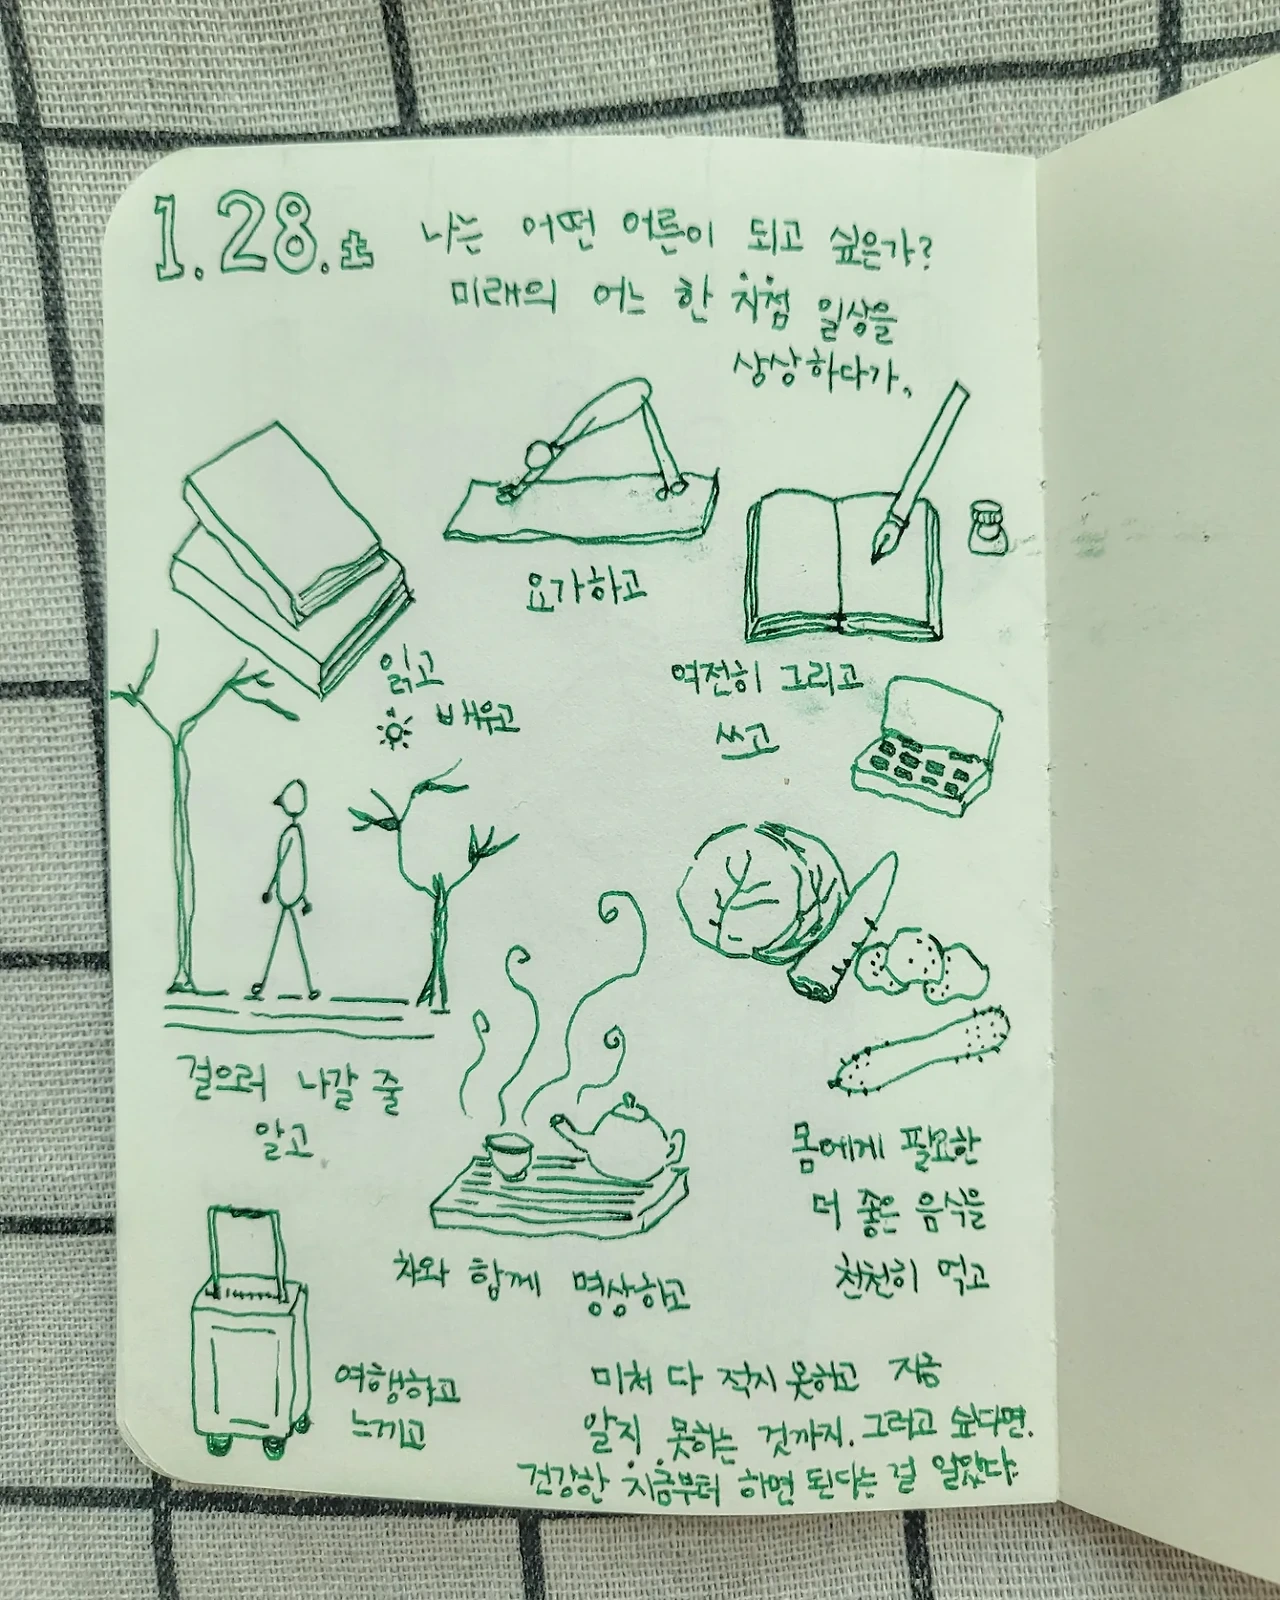 1.28.土
나는 어떤 어른이 되고 싶은가?
미래의 어느 한 지점 일상을
상상하다가,
요가하고
읽고
배우고
여전히 그리고
쓰고
걸으러 나갈 줄
알고
몸에게 필요한
더 좋은 음식을
천천히 먹고
차와 함께 명상하고
여행하고
느끼고
미처 다 적지 못하고 지금
알지 못하는 것까지. 그러고 싶다면.
건강한 지금부터 하면 된다는 걸 알았다.